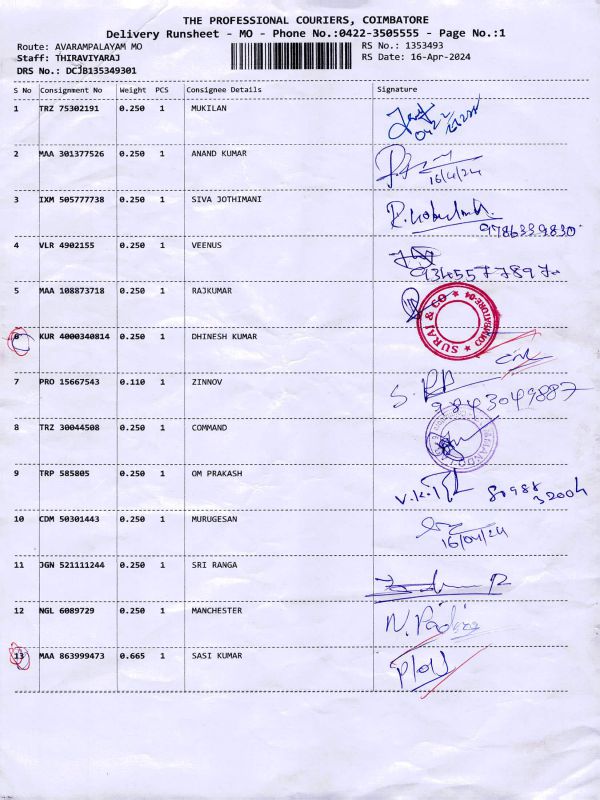 THE PROFESSIONAL COURIERS, COIMBATORE
Delivery Runsheet - MO - Phone No.:0422-3505555 - Page No.:1
Route: AVARAMPALAYAM MO
RS No.: 1353493
Staff: THIRAVIYARAJ
RS Date: 16-Apr-2024
DRS No.: DCJB135349301
S No Consignment No Weight PCS Consignee Details Signature
1 TRZ 75302191 0.250 1 MUKILAN
2 MAA 301377526 0.250 1 ANAND KUMAR
16/4/24
3 IXM 505777738 0.250 1 SIVA JOTHIMANI
9786339830
4 VLR 4902155 0.250 1 VEENUS
5 MAA 108873718 0.250 1 RAJKUMAR
SURAJ & CO ★ COIMBATORE-04 ★
6 KUR 4000340814 0.250 1 DHINESH KUMAR
7 PRO 15667543 0.110 1 ZINNOV
9843049887
8 TRZ 30044508 0.250 1 COMMAND
9 TRP 585805 0.250 1 OM PRAKASH
10 CDM 50301443 0.250 1 MURUGESAN
16/04/24
11 JGN 521111244 0.250 1 SRI RANGA
12 NGL 6089729 0.250 1 MANCHESTER
13 MAA 863999473 0.665 1 SASI KUMAR